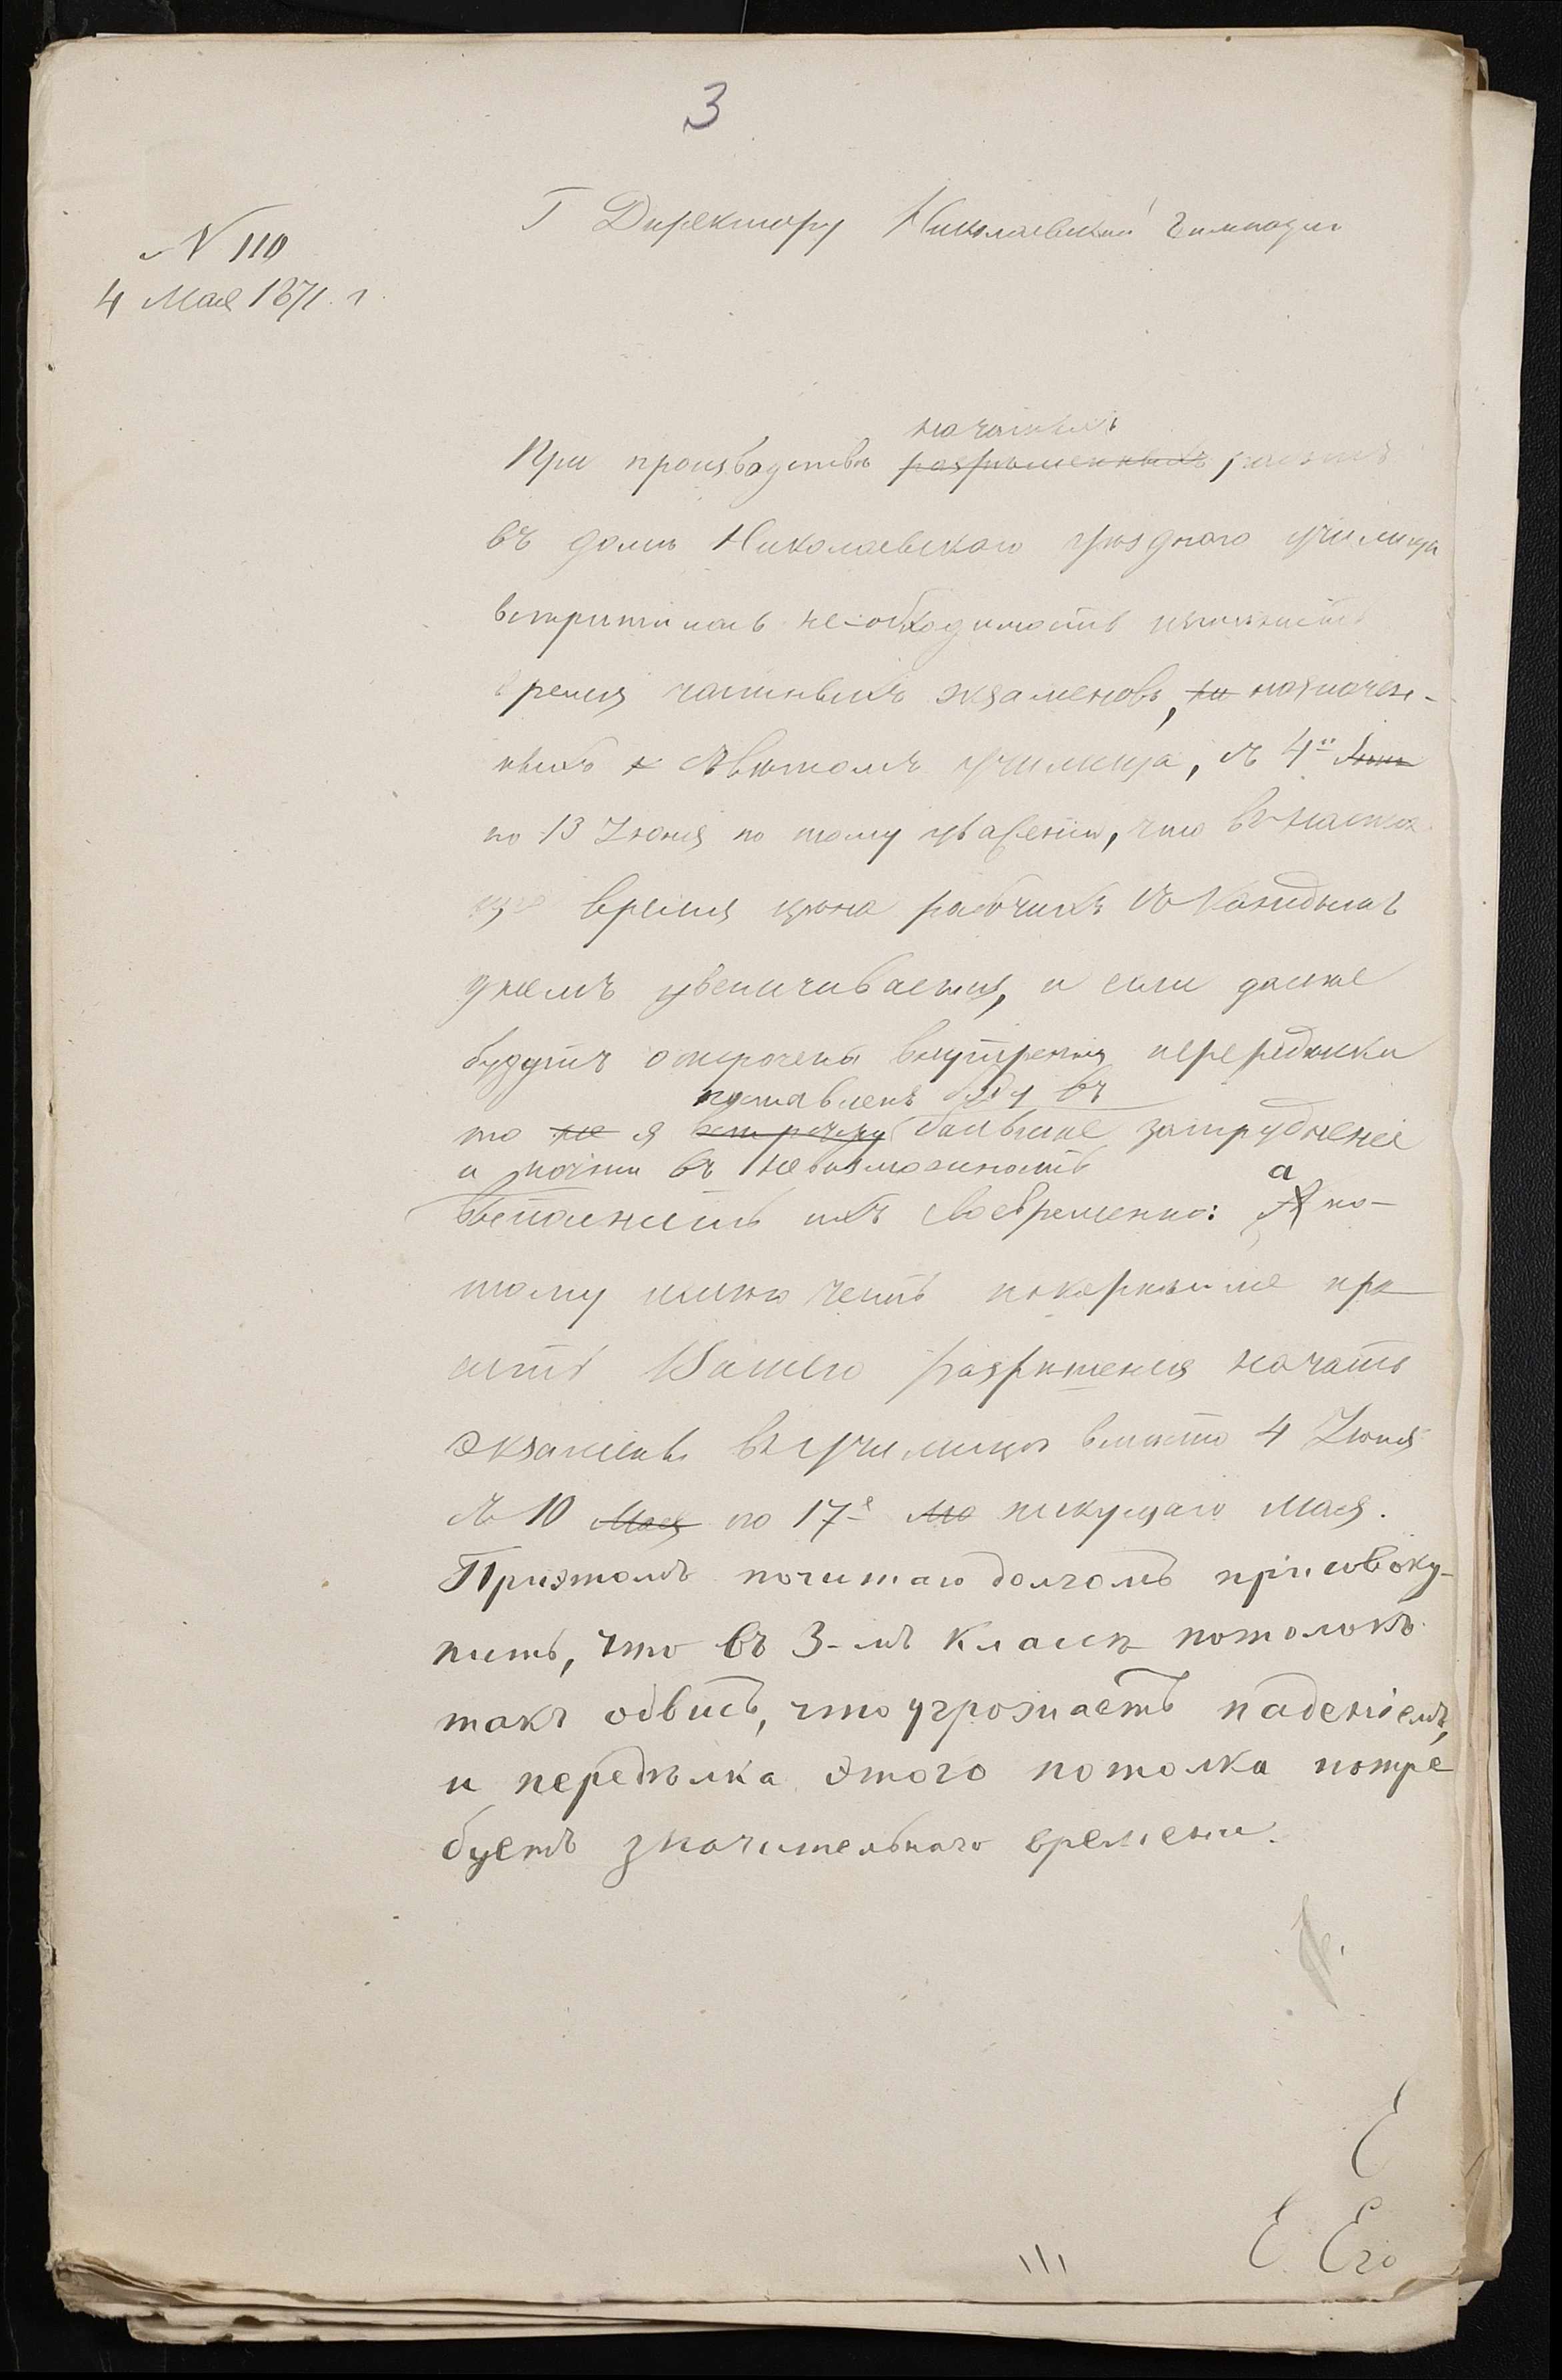 3
N 110
4 Мая 1871. г.
Г Директору Николаевской Гимназіи
начатыхъ
При производствѣ разрѣшенныхъ работъ
въ домѣ Николаевскаго уѣзднаго училища
встрѣтилась необходимость измѣнить
время частныхъ экзаменовъ, назначен-
ныхъ совѣтомъ училища, съ 4го
по 13 Іюня по тому уваженію, что въ настоя
щее время цѣна рабочихъ съ каждымъ
днемъ увеличивается, и если далѣе
будутъ отсрочены внутреннія передѣлки
поставленъ буду въ
то не я встрѣчу большое затрудненіе
и почти въ невозможность
выполнить ихъ своевременно: а по-
тому имѣю честь покорнѣйше про
сить Вашего разрѣшенія начать
экзамены въ училищѣ вмѣсто 4 Іюня
съ 10 Мая по 17е ма текущаго мая.
Приэтомъ почитаю долгомъ присовоку-
пить, что въ 3-мъ классѣ потолокъ
такъ обвисъ, что угрожаетъ паденіемъ,
и передѣлка этого потолка потре
буетъ значительнаго времени.
Е
Е Его